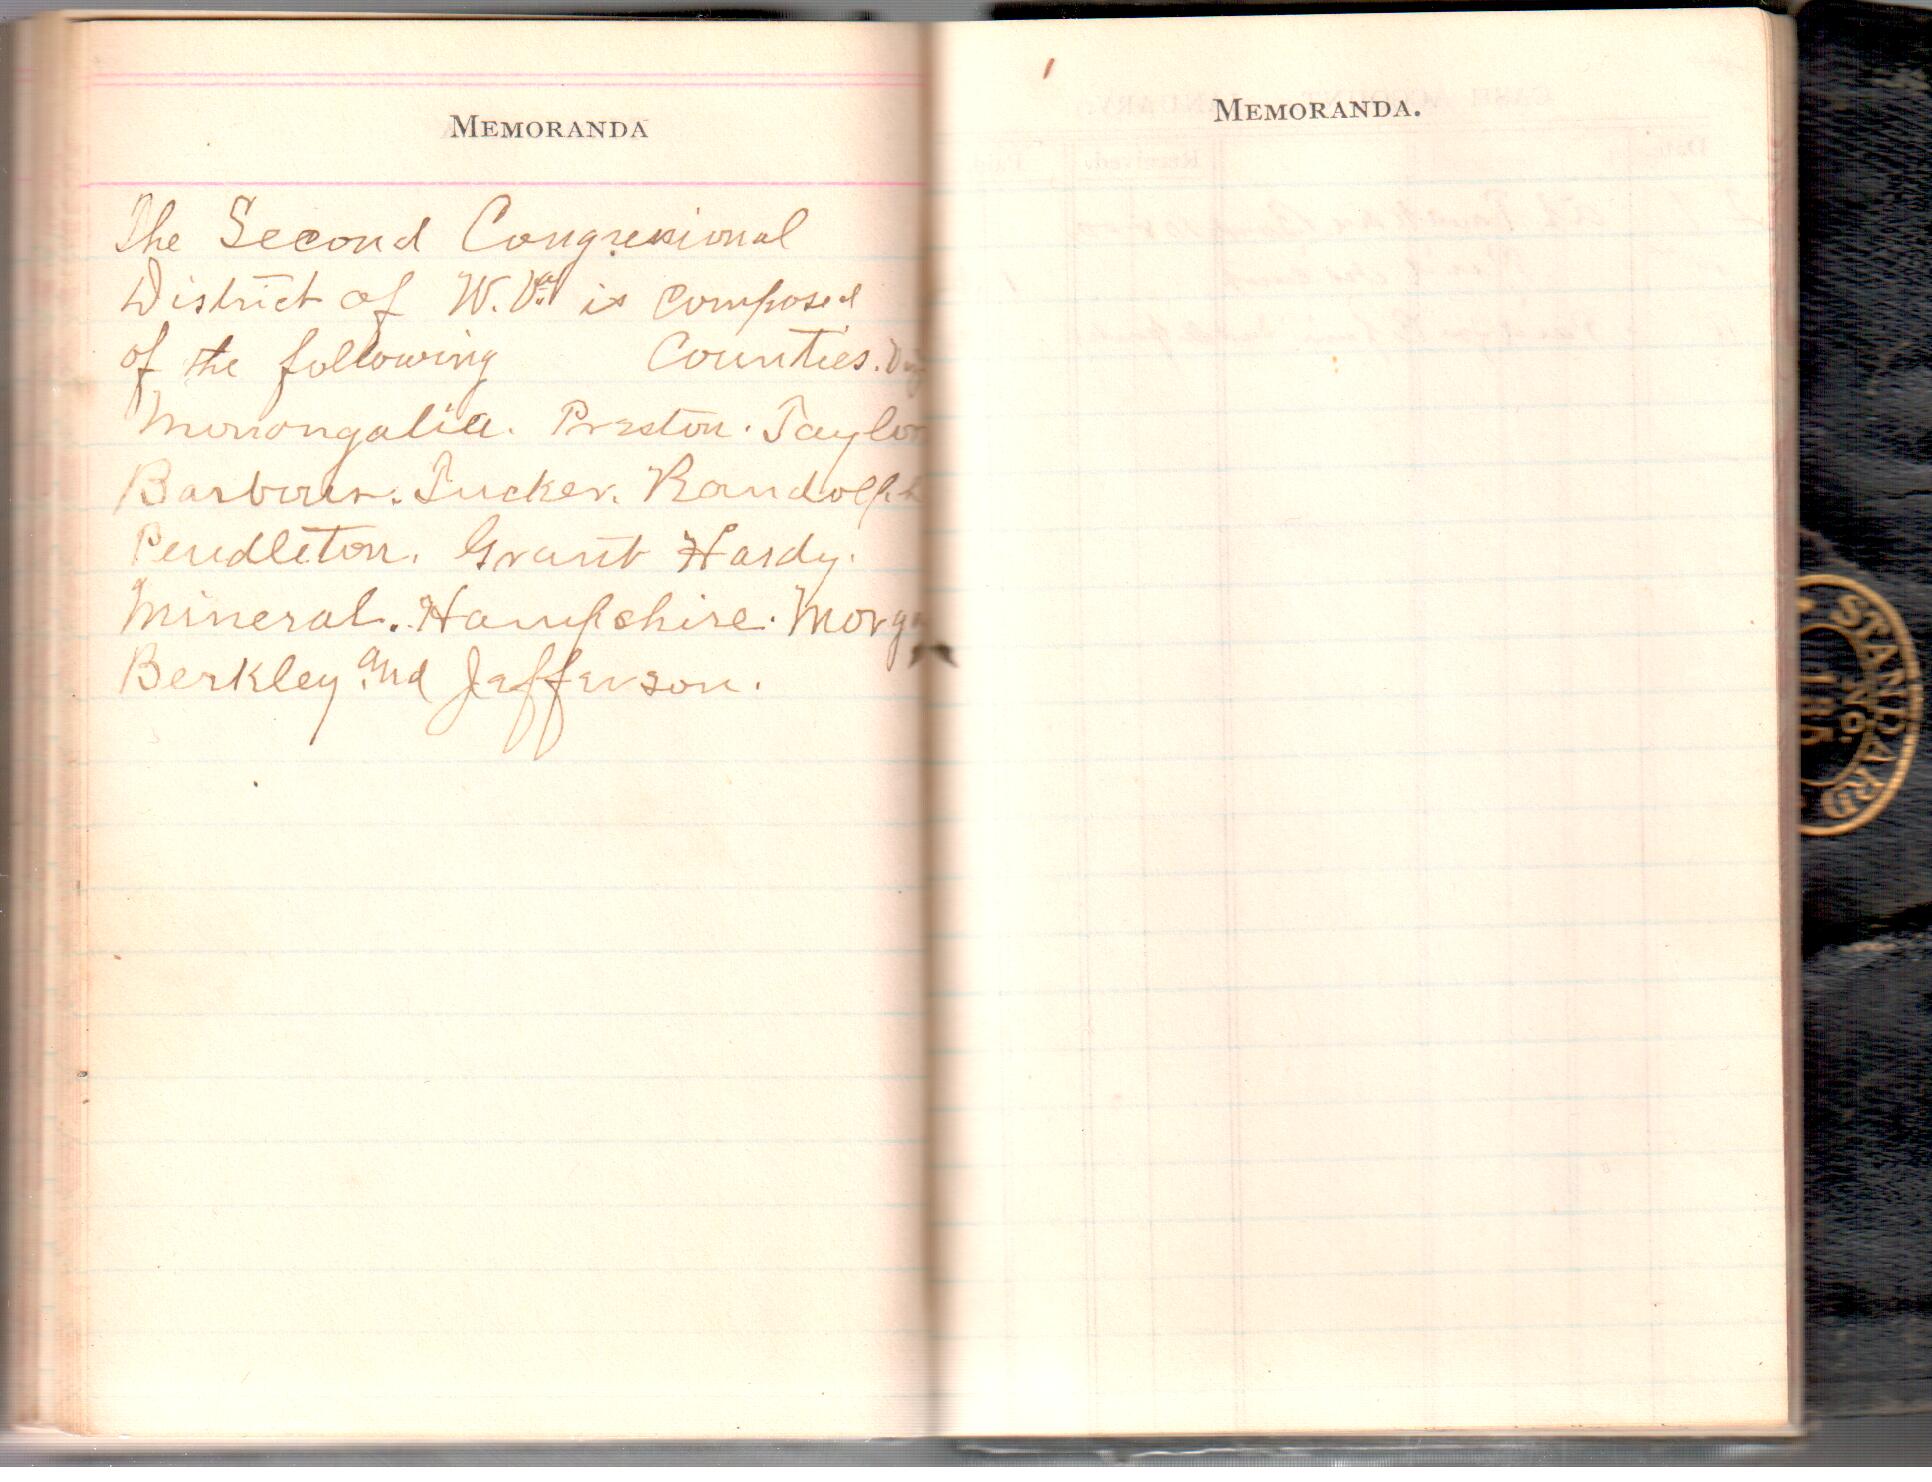 MEMORANDA
The Second Congresional
District of W. Va. is composed
of the following Counties.
Monongalia. Preston. Taylor
Barbour. Tucker. Randolph
Pendleton. Grant Hardy.
Mineral. Hampshire. Morgan
Berkley and Jefferson.
MEMORANDA.
STANDARD
NO.